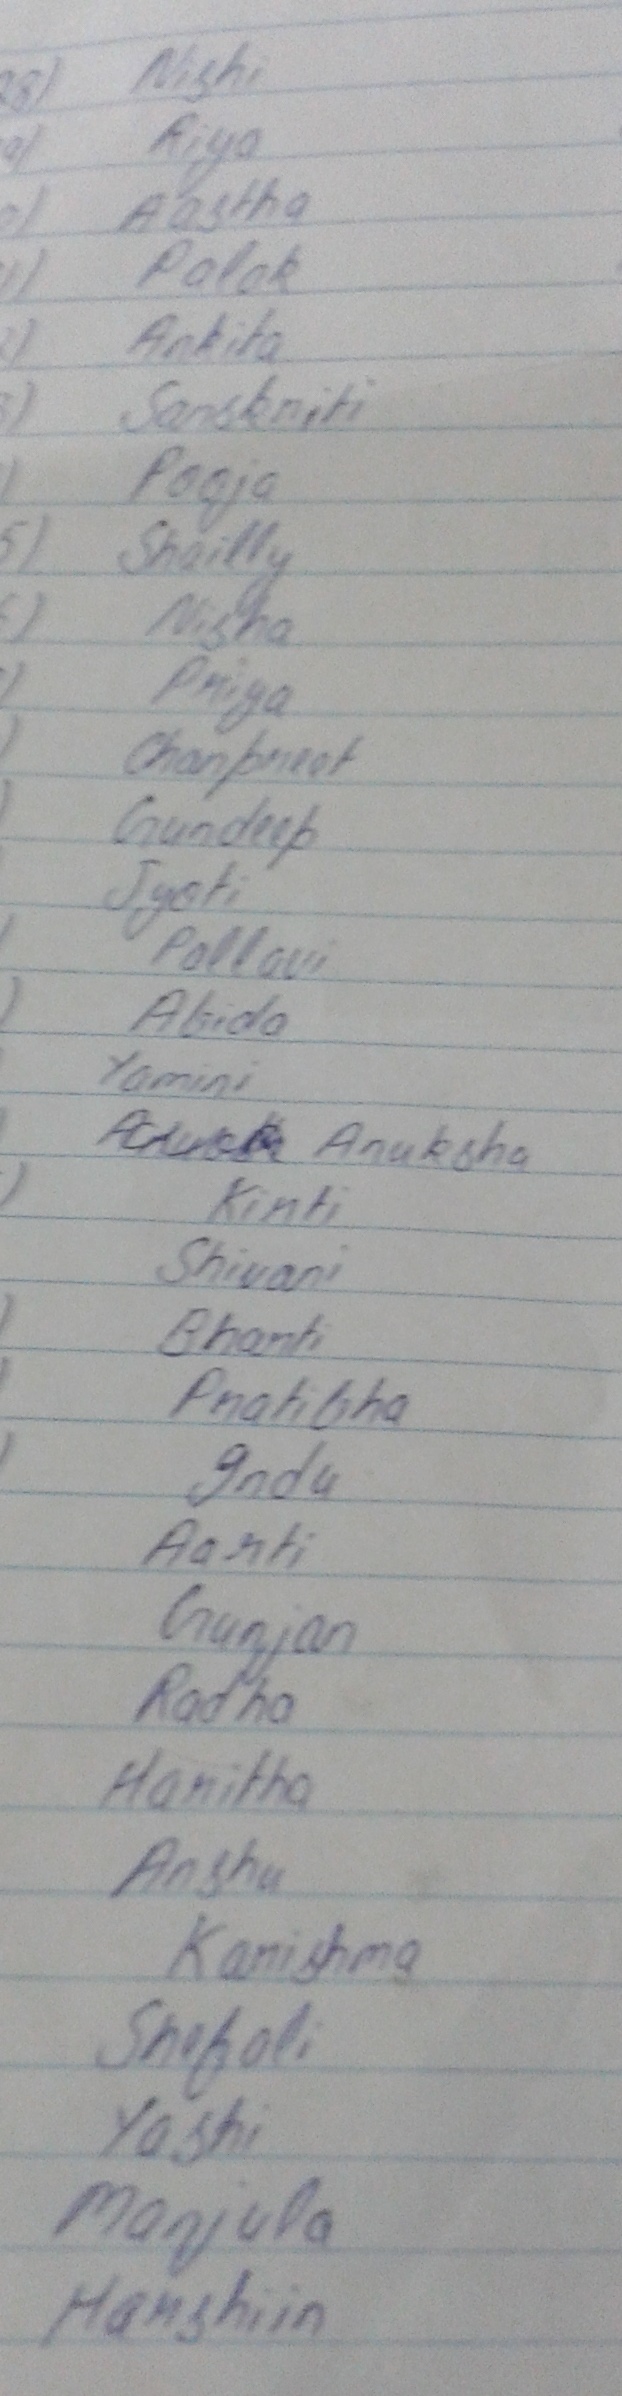 28) Nishi
9) Riya
0) Aastha
1) Palak
2) Ankita
3) Sanskriti
) Pooja
5) Shailly
6) Nisha
) Priya
) Charpreet
) Gurdeep
Jyoti
) Pallavi
) Abida
Yamini
) Anuksha
) Kirti
Shivani
) Bharti
) Pratibha
) Indu
Aarti
Gunjan
Radha
Haritha
Anshu
Karishma
Shefali
Yashi
Manjula
Harshiin